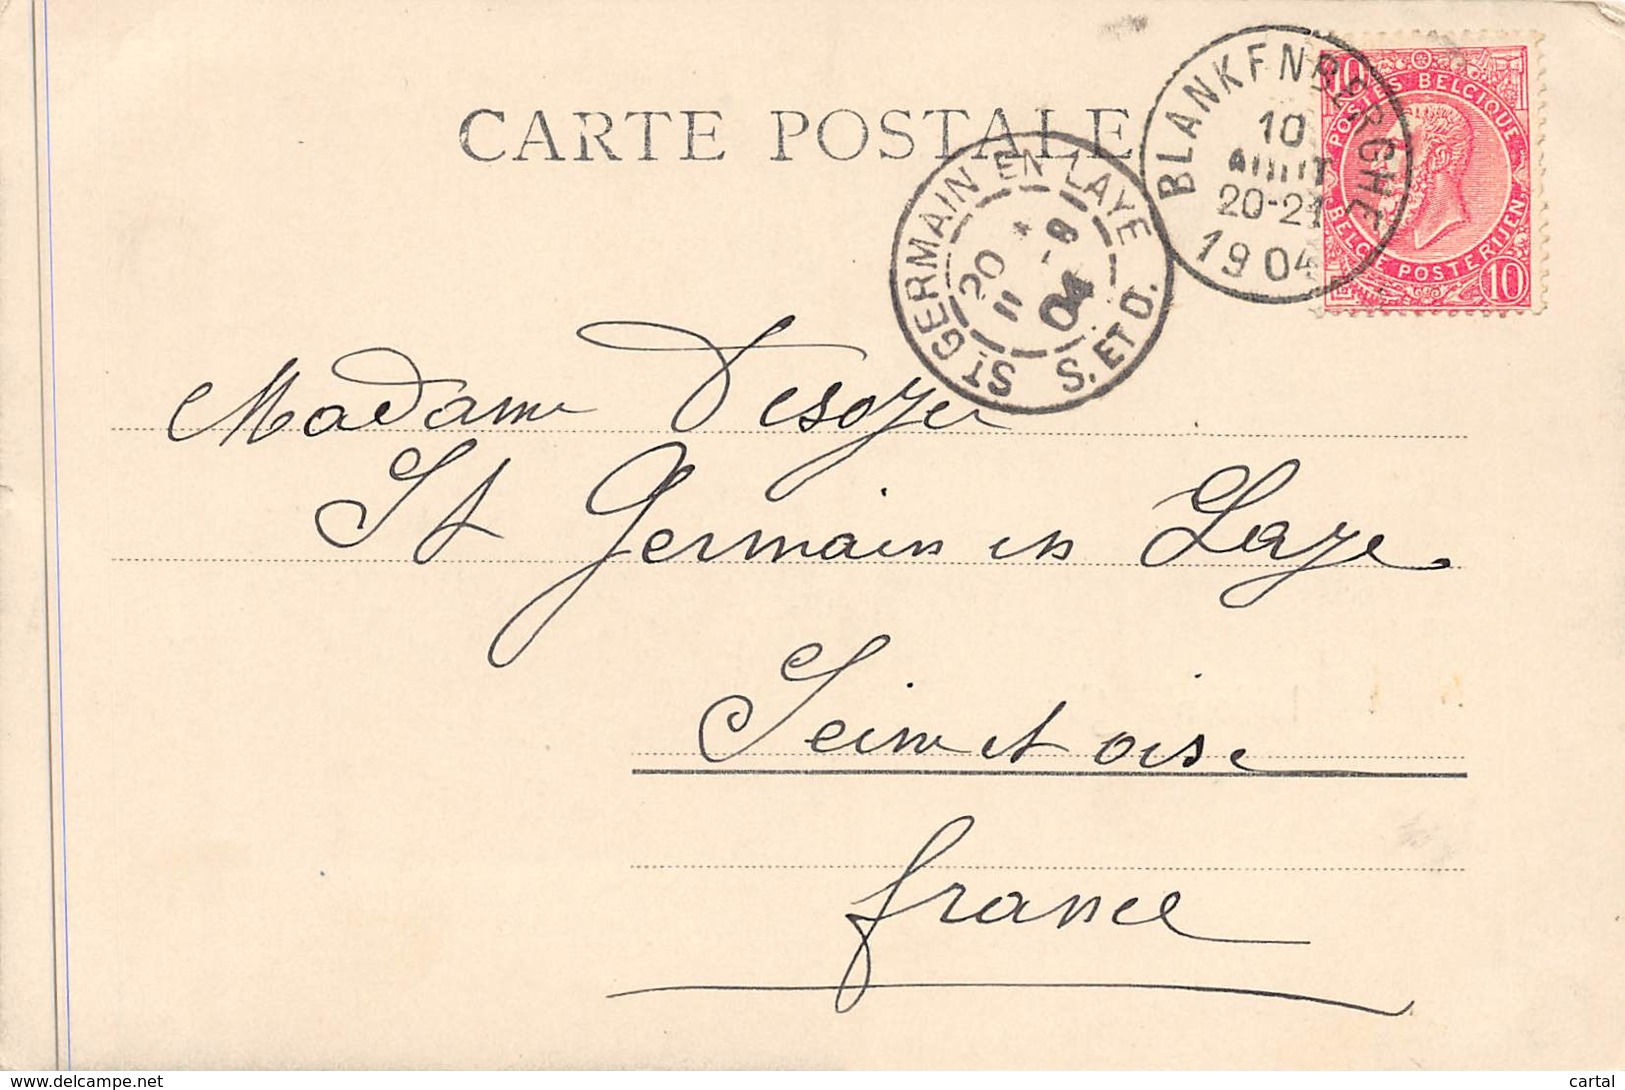 CARTE POSTALE
BLANKENBERGHE
10
AOUT
20-21
1904
10
POSTES BELGIQUE
BELGIE POSTERIJEN
10
ST GERMAIN EN LAYE
20 * 
11 -8
04
S. ET O.
Madame Desoyer
St Germain en Laye.
Seine et oise
france
www.delcampe.net
cartal